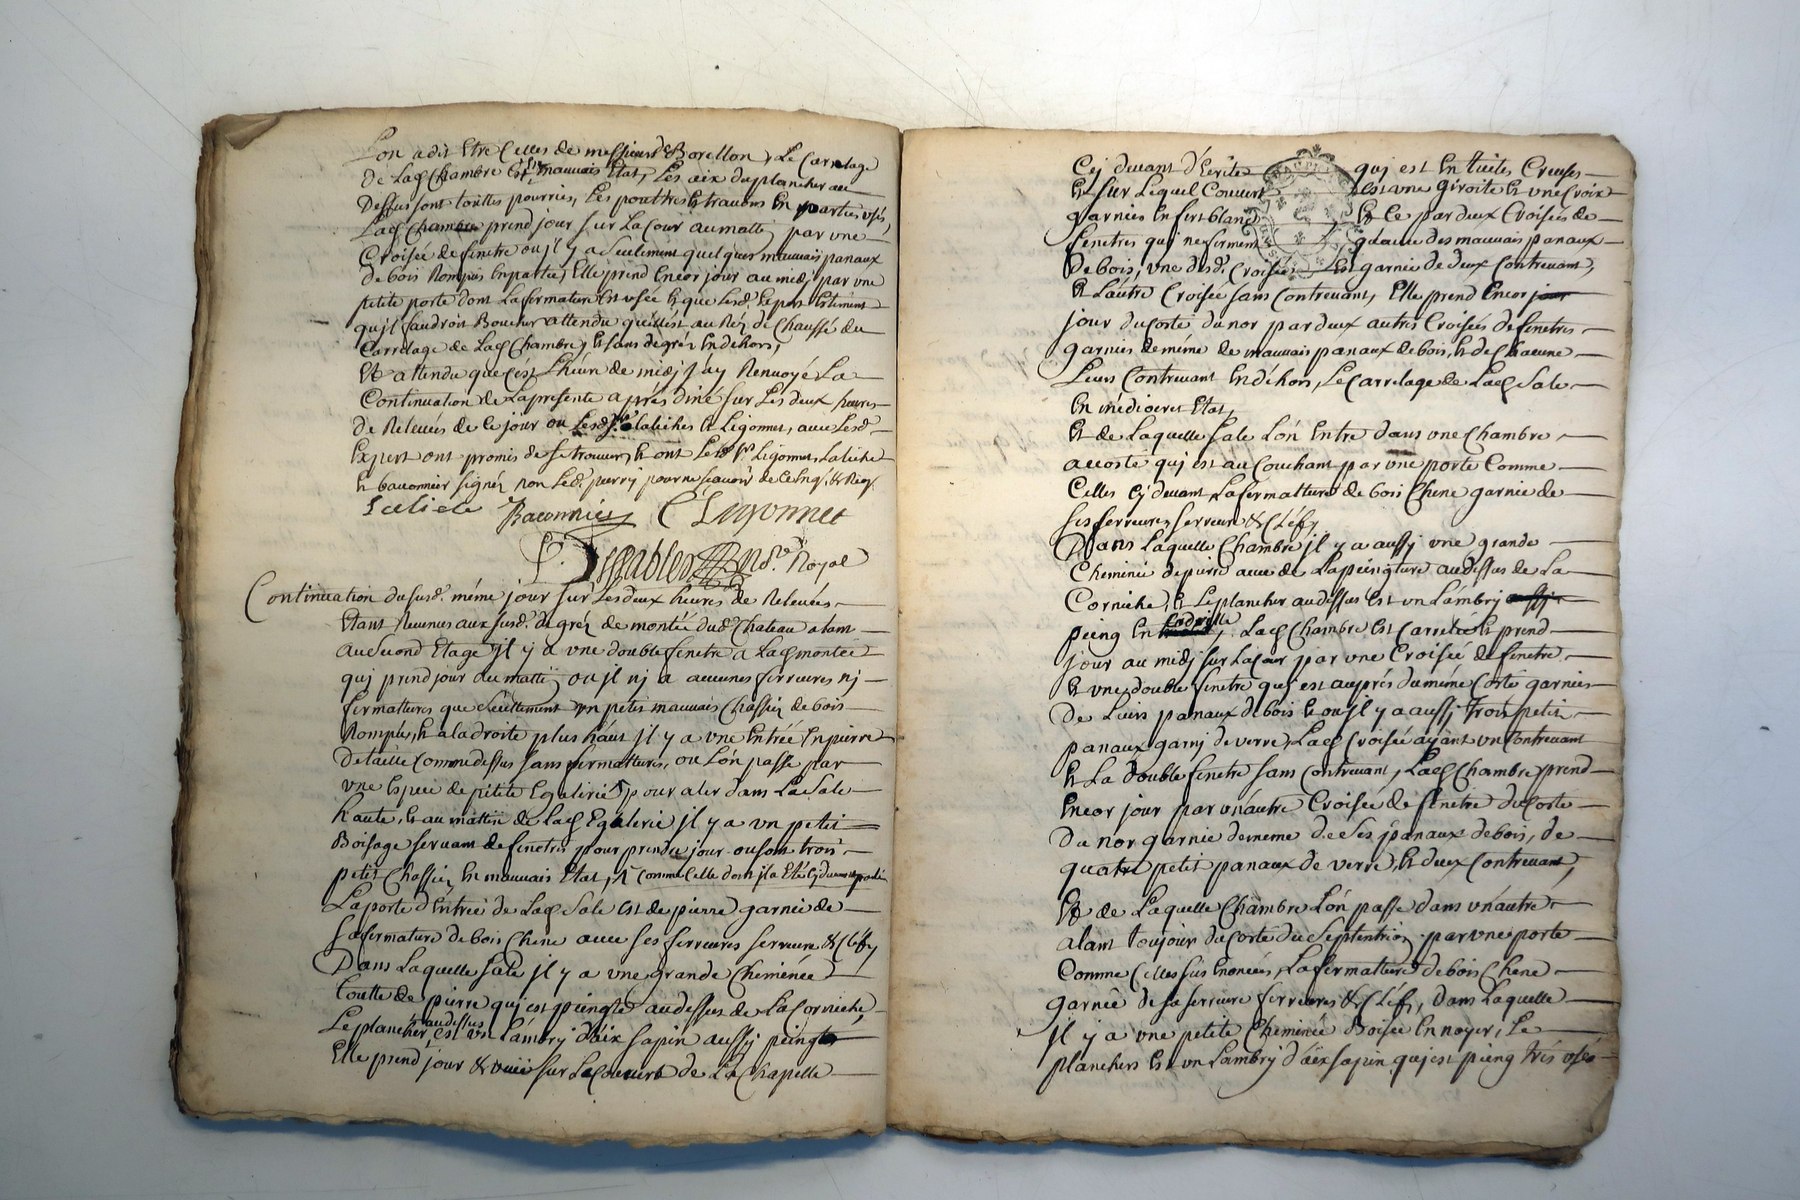 Lon a dit Etre Celles de messieurs de Borellon, Le Carrelage
de Lad Chambre Est En mauvais Etat, Les aix du plancher au
Dessus sont touttes pourries, Les pouttres & travons En partie usés,
Lad Chambre prend jour sur La Cour au mattin par une
Croisée de fenetre ou jl y a Seulement quelques mauvais panaux
de bois Rompus En partie, Elle prend Encor jour au midj par une
petite porte dont La fermature Est usée & que Lesd Expers Estiment
qu'jl faudroit Boucher attendu qu'elle est au Réz de Chaussé du
Carrelage de Lad Chambre, & sans degrés En dehors,
Et attendu que C'est L'heure de midj j'ay Renvoyé La
Continuation de La présente aprés diné sur Les deux heures
de Relevées de Ce jour ou Lesd Srs Laliche & Ligonnet, avec Lesd
Expert ont promis de se trouver, & ont Lesd Srs Ligonnet, Laliche
& baconnier signéz non Led perrin pour ne scavoir de Ce Enqs & Reqs
Laliche Baconnier C Ligonnet
Nore Royal
Continuation du susd. méme jour sur Les deux heures de Relevées
Etant Revenus aux susd. degréz de montée dud Chateau alant
au second Etage jl y a une double fenetre a Lad montée
qui prend jour du mattin ou jl nj a aucunes ferrures nj
fermattures que seullement un petit mauvais Chassiz de bois
Rompu, & a la droite plus haut jl y a une Entrée En pierre
de taille Comme dessus sans fermattures, ou L'on passe par
une Espece de petite Egalerie pour aler dans La Sale
haute, & au mattin de Lad Egalerie jl y a un petit
Boisage servant de fenetre pour prendre jour ou sont trois
petit Chassiz En mauvais Etat, Comme Celle dont jl a Eté Cy devant parlé
La porte d'Entrée de Lad Sale Est de pierre garnie de
sa fermature de bois Chene avec ses ferrures serrure & Cléf,
Dans Laquelle Sale jl y a une grande Cheminée
toutte de pierre qui est peingte au dessus de La Corniche,
Le plancher au dessus est un Lambrj d'aix sapin aussy peingt
Elle prend jour & veüe sur Le Couvert de La Chapelle
Cej devant d'Ecrite quj est En tuiles Creuses
& sur Lequel Couvert est une giroite & une Croix
garnies En fert blanc, & Ce par deux Croisées de
fenetres quj ne ferment qu'avec des mauvais panaux
de bois, une desd. Croisées Est garnie de deux Contrevant,
& L'autre Croisée sans Contrevant, Elle prend Encor jour
jour du Coste du nor par deux autres Croisées de fenetres
garnies de méme de mauvais panaux de bois, & de Chacune
Leurs Contrevant En déhors, Le Carrelage de Lad Sale
En médiocres Etat,
& de Laquelle Sale L'on Entre dans une Chambre
acosté quj est au Couchant par une porte Comme
Celles Cy devant La fermatture de bois Chene garnie de
ses ferrures, serrure & Cléf,
Dans Laquelle Chambre jl y a aussy une grande
Cheminée de pierre avec de La peingture au dessus de La
Corniche, & Le plancher au dessus est un Lambrj aussy
peing En, Lad Chambre Est Carrelée & prend
jour au midj sur La Cour par une Croisée de fenetre,
& une double fenetre quj est auprés du méme Costé garnies
de Leurs panaux de bois & ou jl y a aussj trois petit
panaux garnj de verre, Lad Croisée ayant un Contrevant
& La double fenetre sans Contrevant, Lad Chambre prend
Encor jour par un'autre Croisée de fenetre du Costé
Du nor garnie de méme de Ses panaux de bois, de
quatre petit panaux de verre, & deux Contrevant,
Et de Laquelle Chambre L'on passe dans un'autre
alant toujour du Costé du Septentrion par une porte
Comme Celles sus Enoncées, La fermatture de bois Chene
garnie de sa serrure ferrures & Cléf, dans Laquelle
jl y a une petite Cheminée Boisée En noyer, Le
planchers Est un Lambrj d'aix sapin quj est peing trés usés